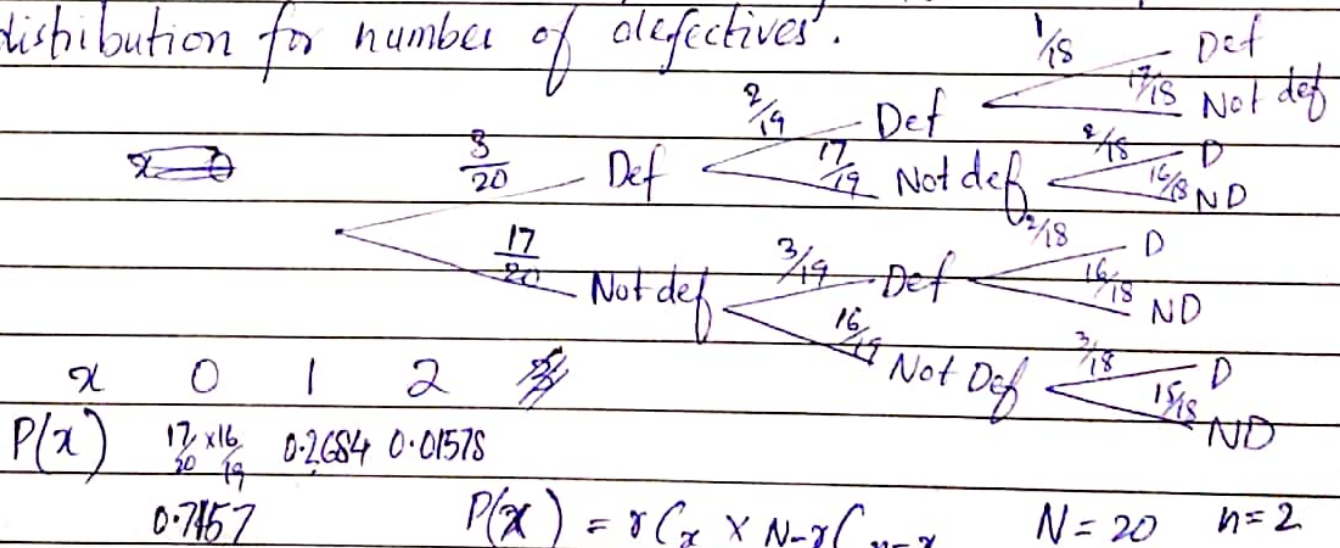 distribution for number of defectives'.
1/18 Def
17/18 Not def
2/19 Def
3/20 Def
17/19 Not def
2/18 D
16/18 ND
17/20 Not def
3/19 Def
2/18 D
16/18 ND
16/19 Not Def
3/18 D
15/18 ND
x 0 1 2
P(x) 17/20 x 16/19 0.2684 0.01578
0.7157 P(x) = rCx X N-rCn-x N=20 n=2